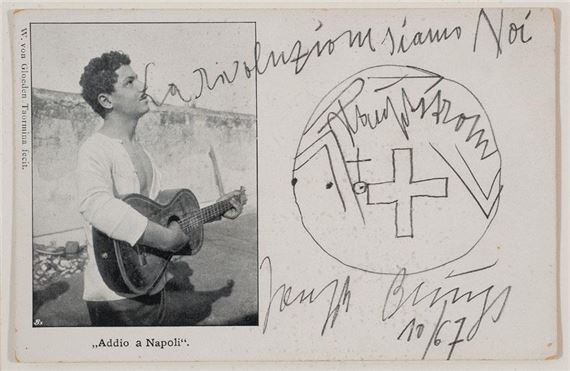 La rivoluzione siamo Noi
W. von Gloeden Taormina fecit.
Hauptstrom
Joseph Beuys
10/67
„Addio a Napoli“.